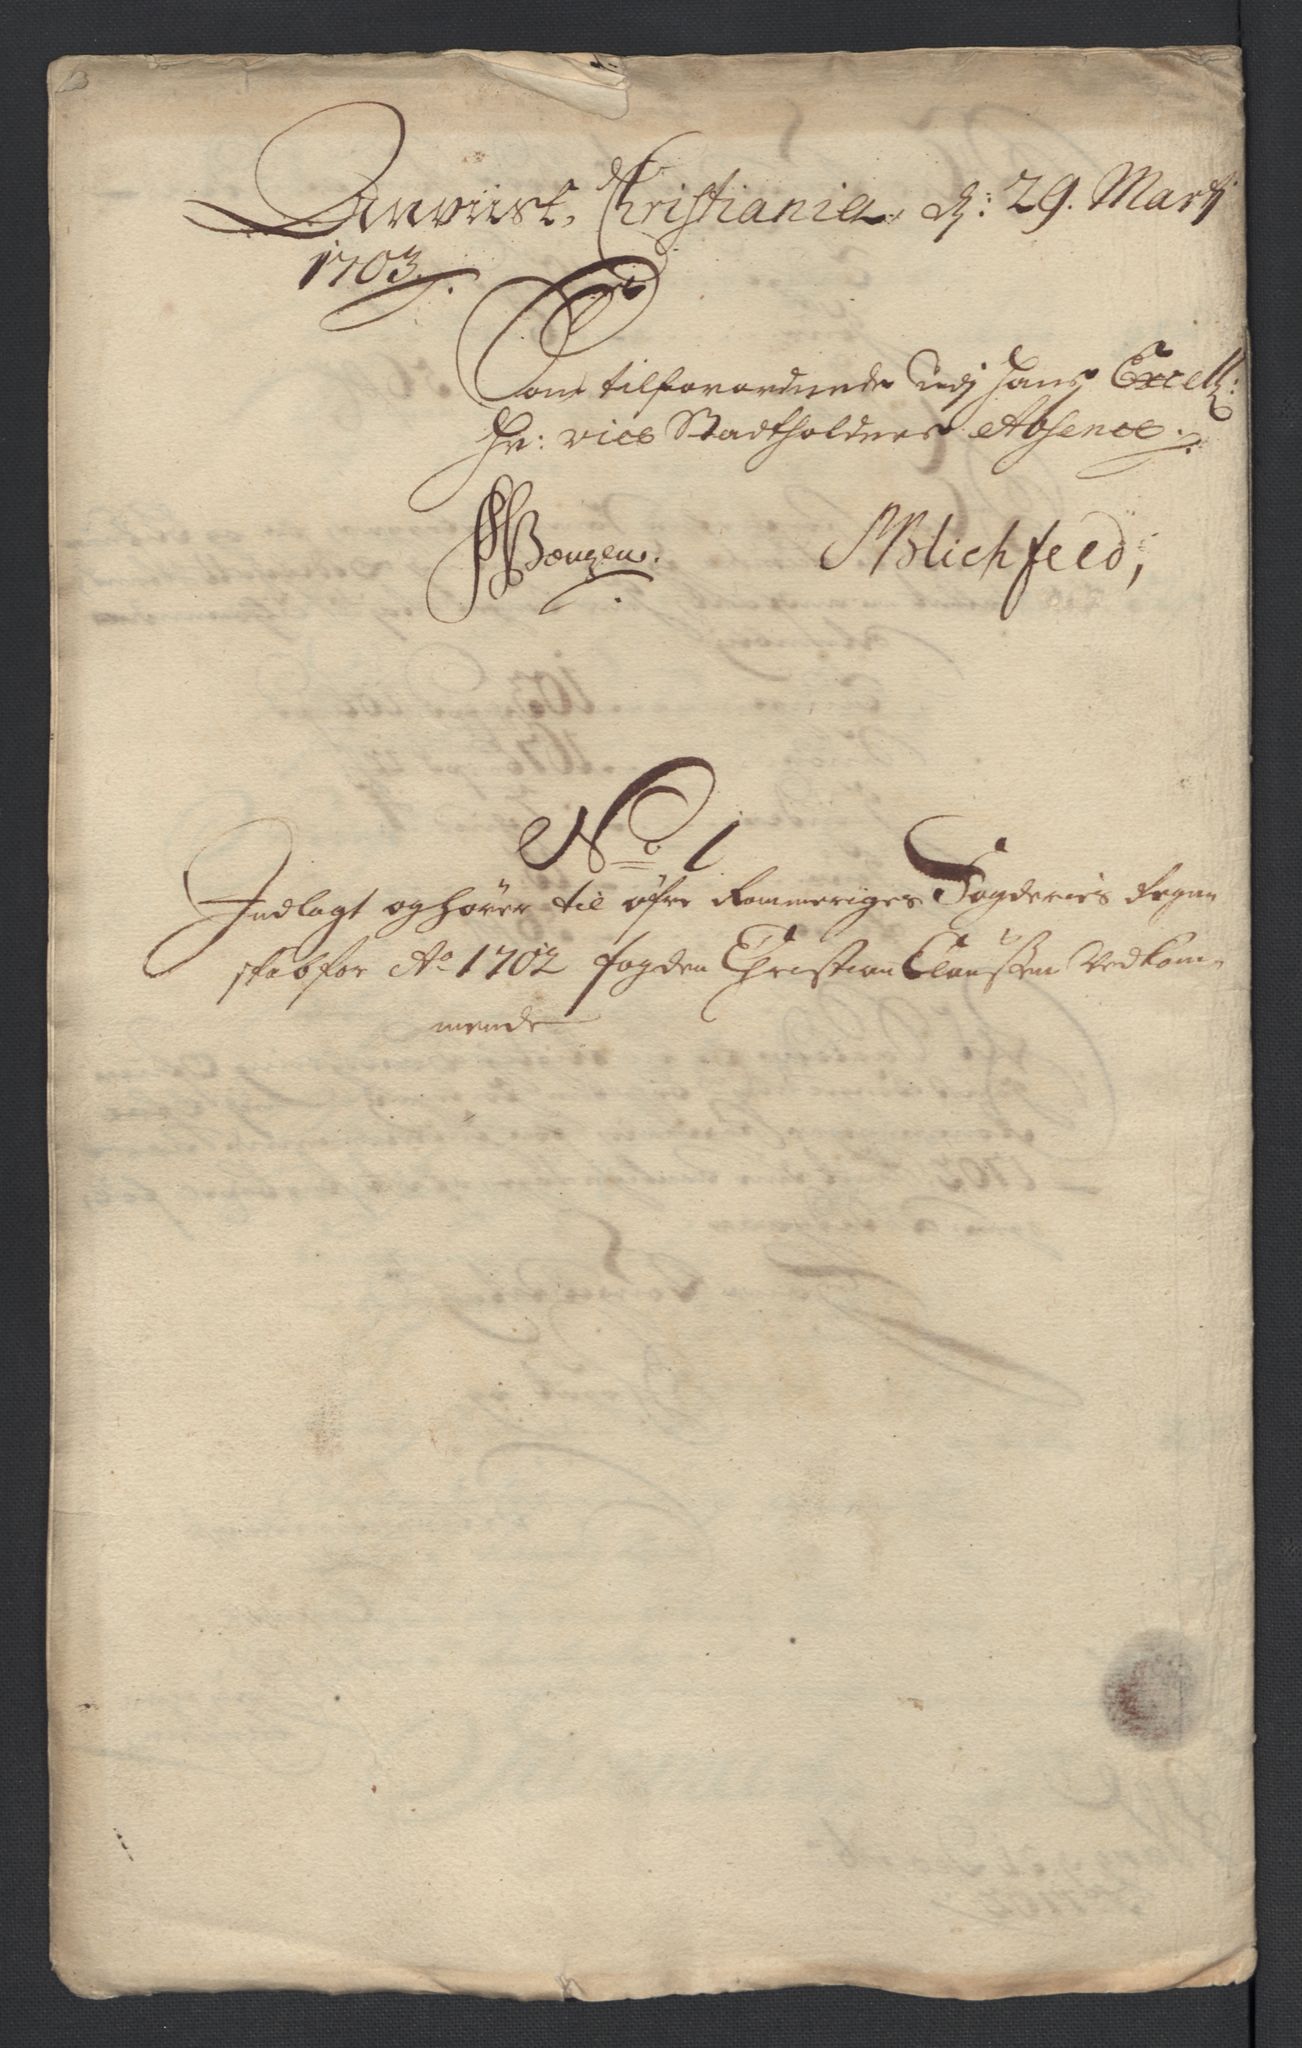 Anviist, Christiania, d: 29. Martj
1703.
Som tilforordnede udj Hans Excell:
Hr: vice Stadtholders Absence.
Blichfeld,
No 1
Indlagt og hører til øfre Rommeriges Fogderies Regen
skab for Ao 1702 fogden Christian Claussen Vedkom-
mende